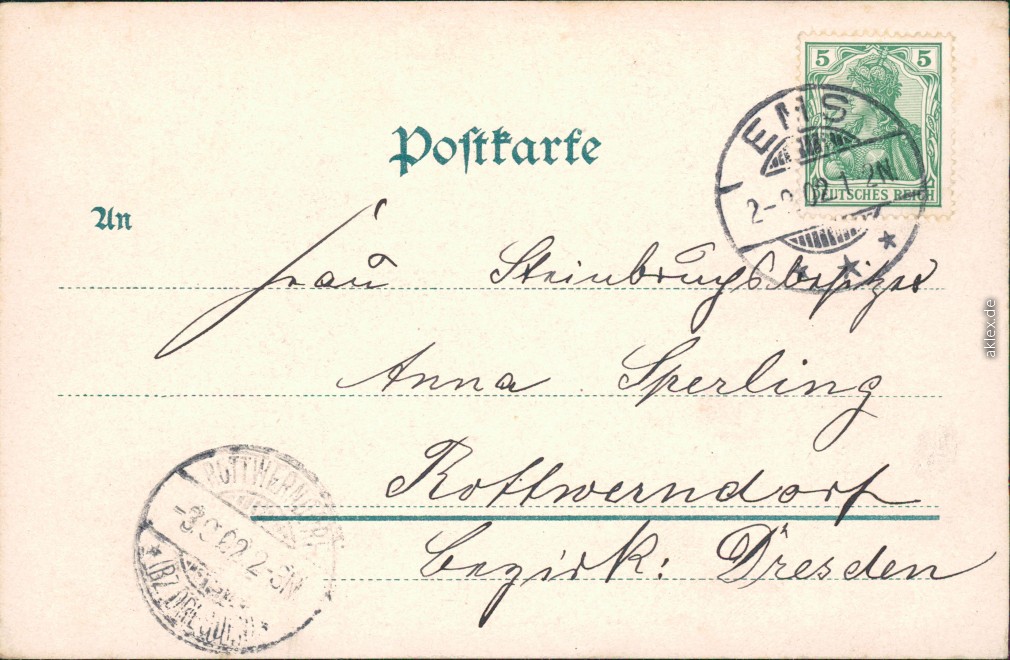 5 5
DEUTSCHES REICH
EMS
2-9.02.1-2N
Postkarte
An
Frau Steinbruchsbesitzer
Anna Sperling
Rottwerndorf
Bezirk: Dresden
ROTTWERNDORF
-3.9.02.2-3N
* (BZ. DRESDEN) *
aklex.de